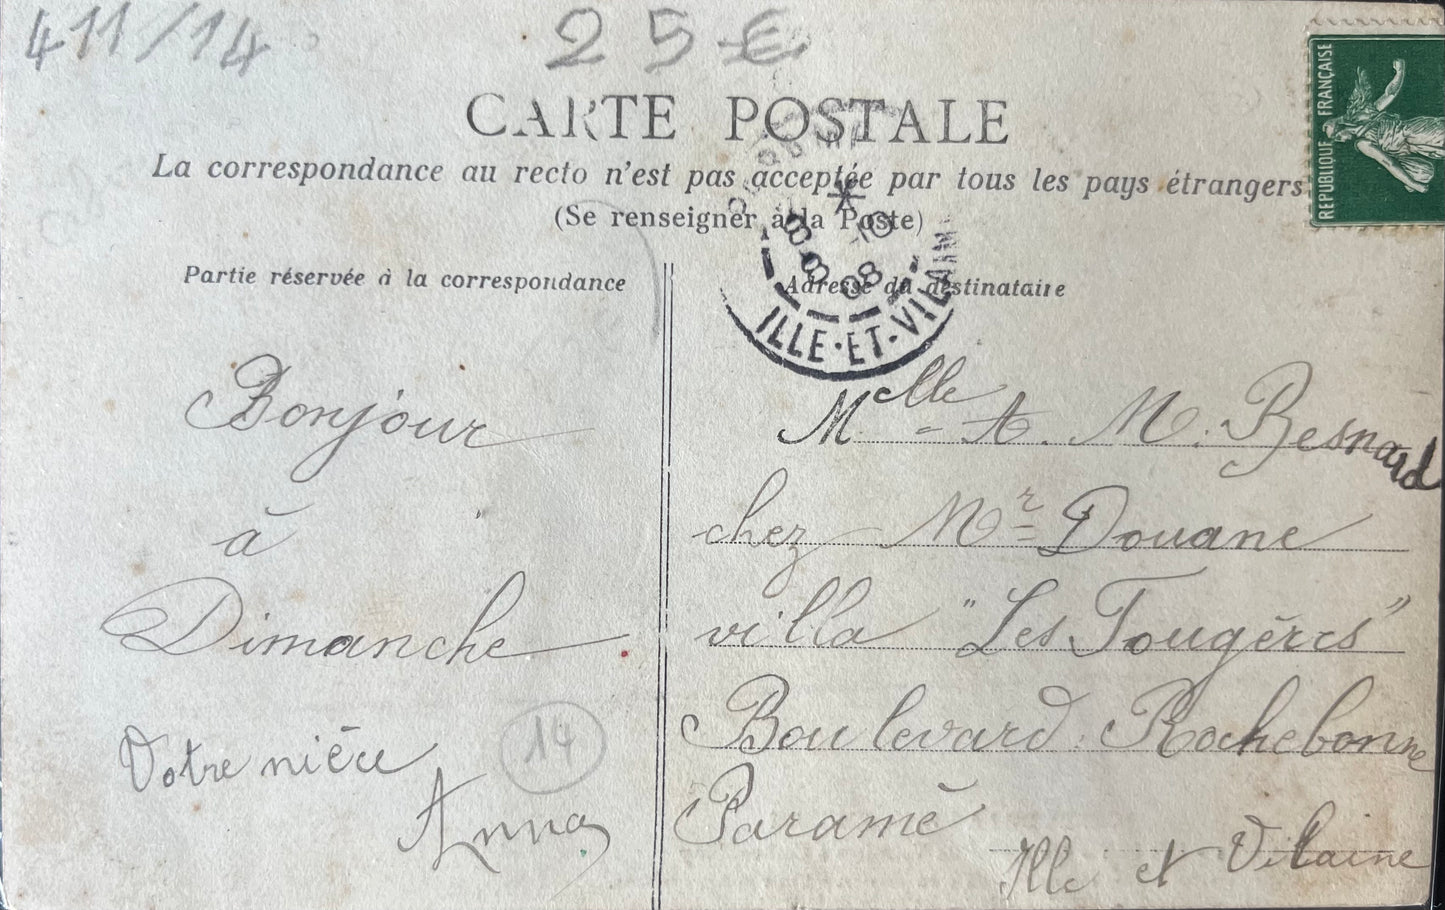 411/14
25 €
REPUBLIQUE FRANÇAISE
CARTE POSTALE
La correspondance au recto n'est pas acceptée par tous les pays étrangers
(Se renseigner à la Poste)
8-8
10
08
ILLE-ET-VILAINE
Partie réservée à la correspondance
Bonjour
à
Dimanche
Votre nièce
Anna
14
Adresse du destinataire
Melle A. M. Besnard
chez Mr Douane
villa "Les Fougères"
Boulevard Rochebonne
Paramé
Ille et Vilaine